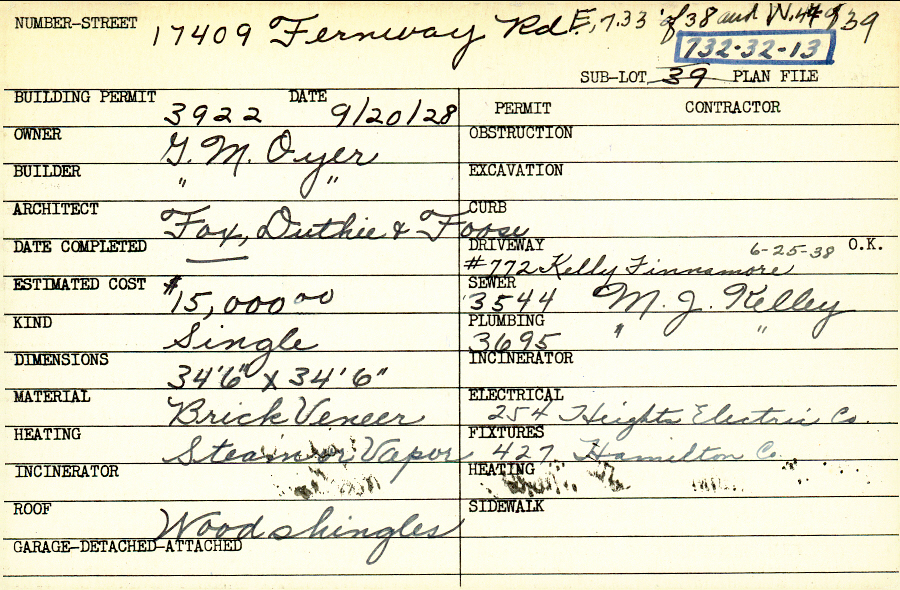 NUMBER-STREET 17409 Fernway Rd. E. 7.33' of 38 and W. 44 of 39
732-32-13
SUB-LOT 39 PLAN FILE
BUILDING PERMIT 3922 DATE 9/20/28
OWNER G. M. Oyer
BUILDER " "
ARCHITECT Fox, Duthie & Foose
DATE COMPLETED —
ESTIMATED COST $15,000.00
KIND Single
DIMENSIONS 34'6" x 34'6"
MATERIAL Brick Veneer
HEATING Steam or Vapor
INCINERATOR
ROOF Wood shingles
GARAGE-DETACHED-ATTACHED
PERMIT CONTRACTOR
OBSTRUCTION
EXCAVATION
CURB
DRIVEWAY 6-25-38 O.K.
#772 Kelly Finnamore
SEWER 3544 M. J. Kelley
PLUMBING 3695 " "
INCINERATOR
ELECTRICAL 254 Heights Electric Co.
FIXTURES 427 Hamilton Co.
HEATING
SIDEWALK